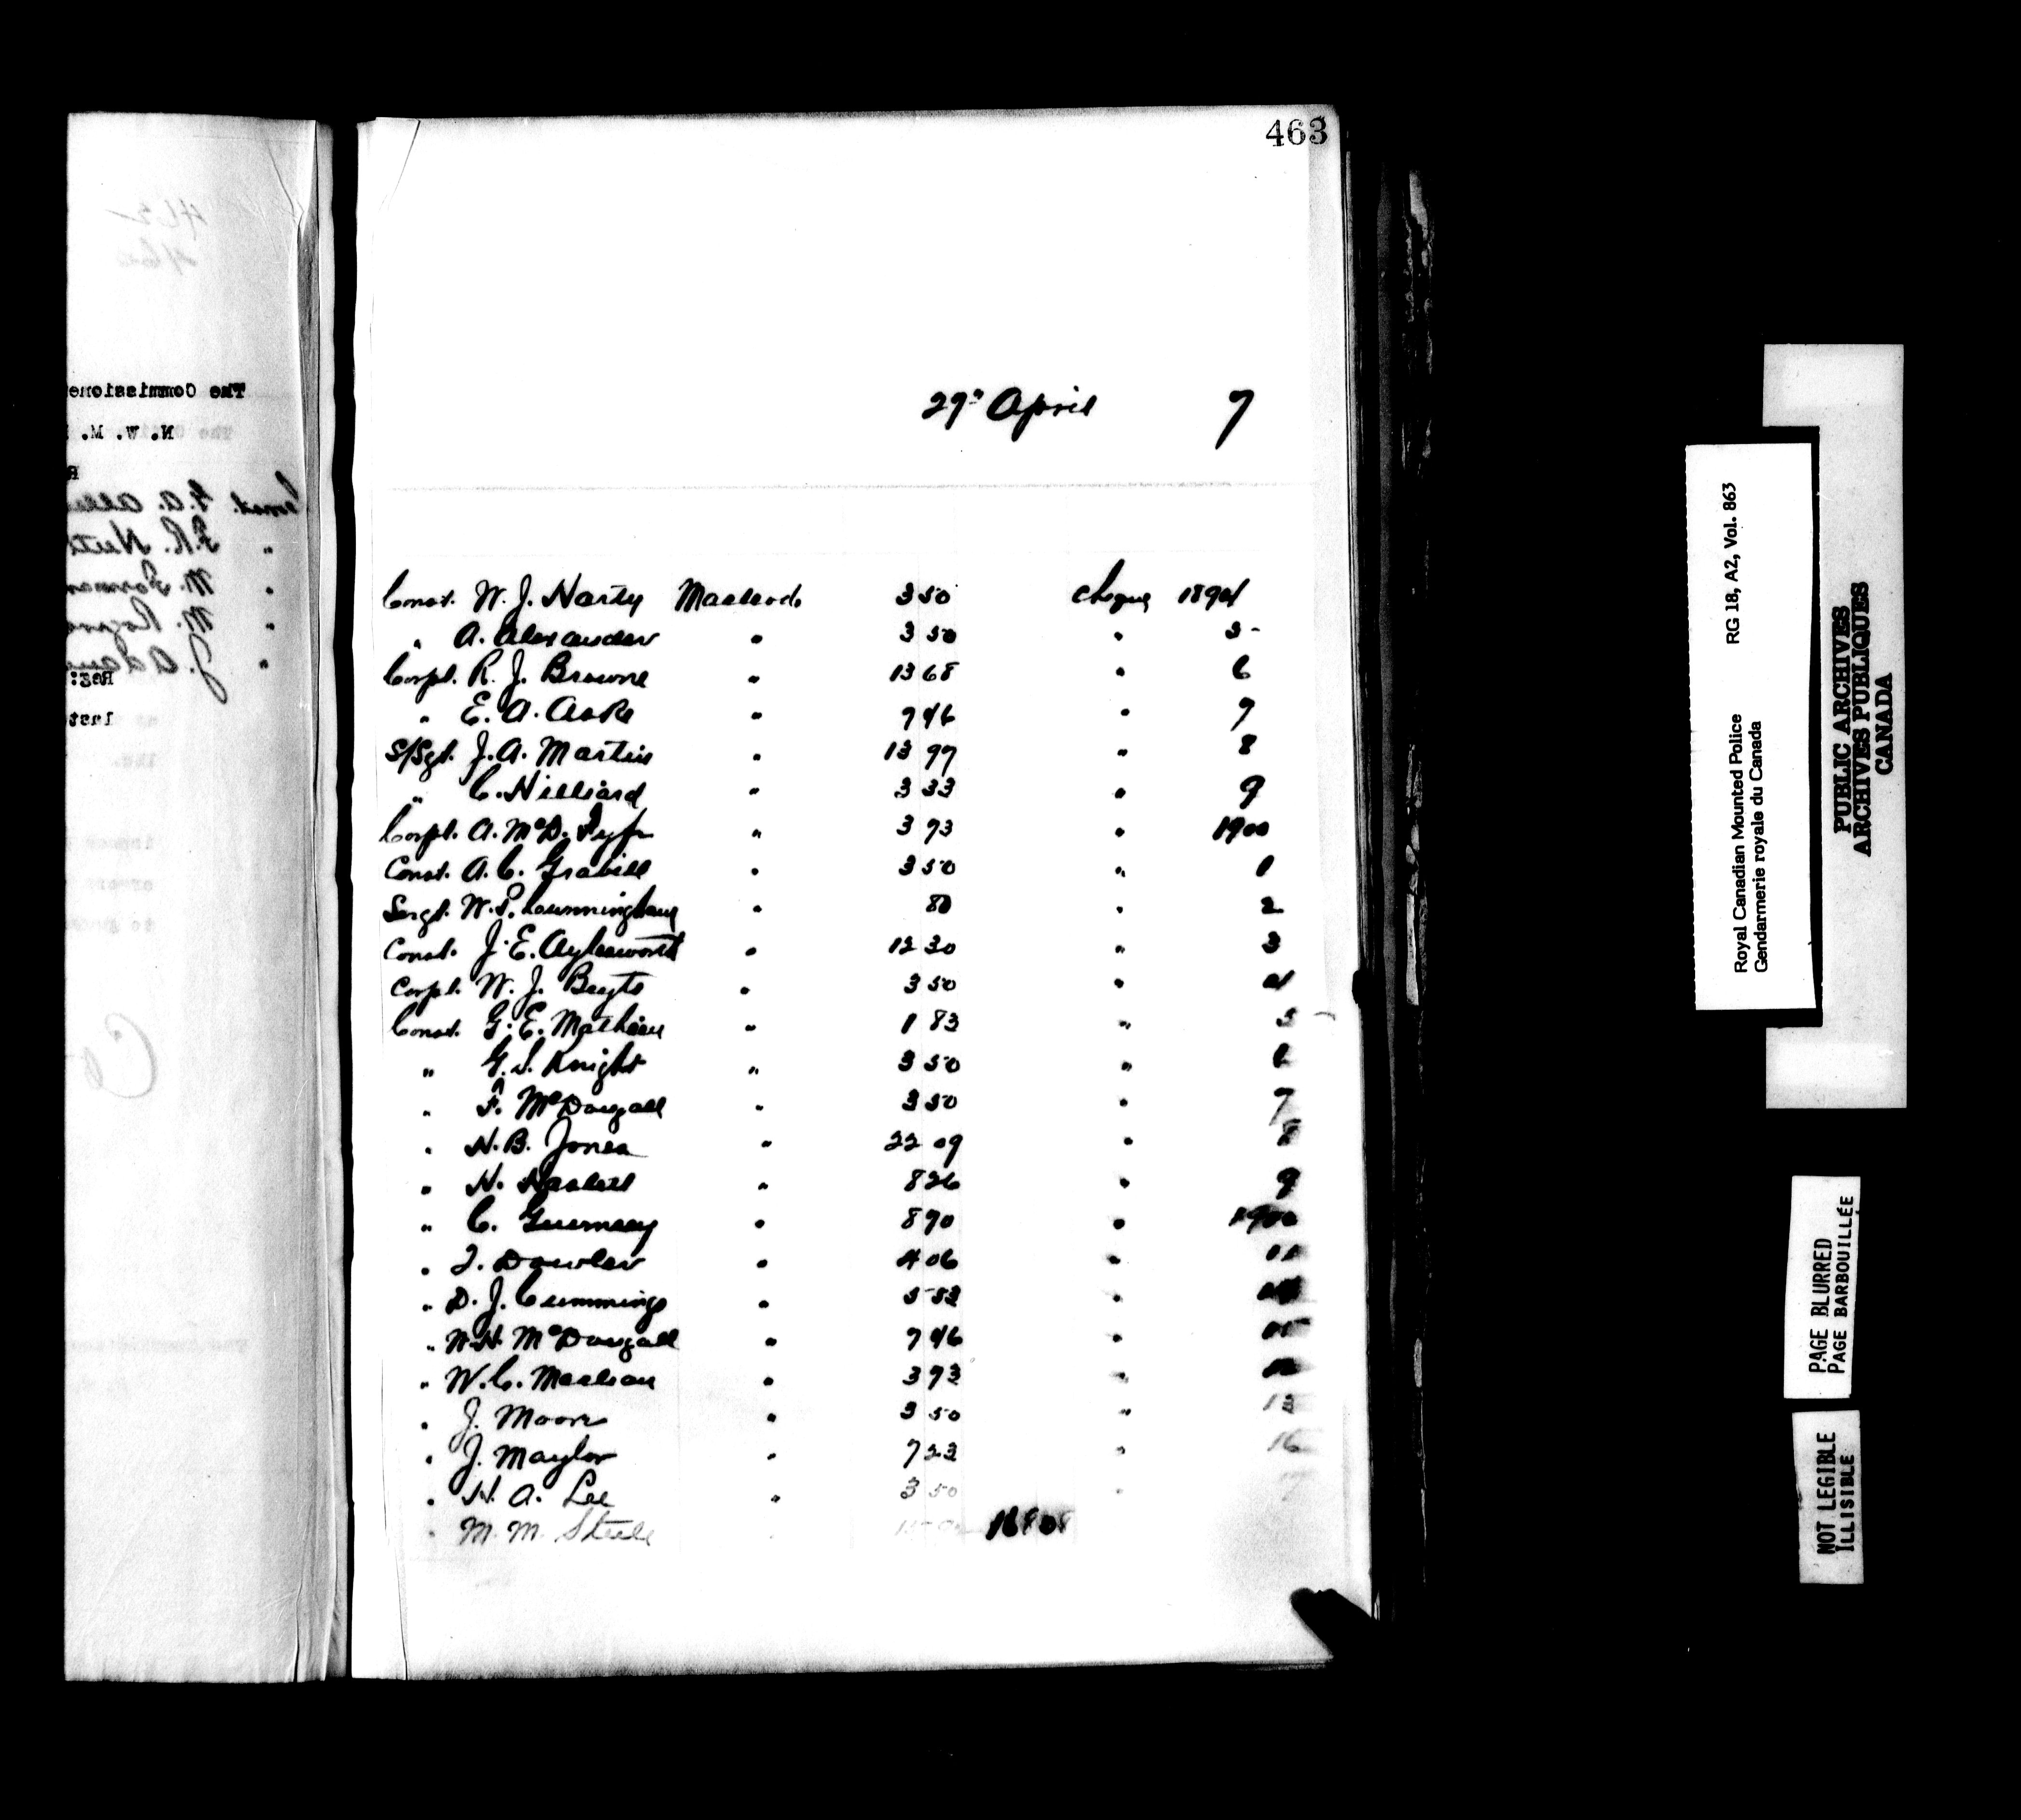 463
29" April 7
Const. W. J. Harty Macleod 3 50 cheque 1894
" A. Alexander " 3 50 " 5
Corpl. R. J. Browne " 13 68 " 6
" E. A. " 7 46 " 7
S/Sgt. J. A. Martin " 13 97 " 8
" C. Hilliard " 3 33 " 9
Corpl. A. McD. Fyfe " 3 93 " 1900
Const. A. C. " 3 50 " 1
Sergt. W. P. Cunningham " 80 " 2
Const. J. E. Aylesworth " 12 30 " 3
Corpl. W. J. " 3 50 " 4
Const. G. E. Mathieu " 1 83 " 5
" G. S. Knight " 3 50 " 6
" F. McDougall " 3 50 " 7
" H. B. Jones " 22 09 " 8
" H. " 8 26 " 9
" C. Guernsey " 8 90 "
" J. Dowler " 4 06 " 11
" D. J. Cummings " 5 52 "
" H. McDougall " 7 46 "
" W. C. Maclean " 3 93 "
" J. Moore " 3 50 "
" J. Maylor " 7 23 " 16
" H. A. Lee " 3 50 "
" M. M. Steele
The Commissione
N. W. M.
Const. G. A. Alle
" F. R.
" W. Forman
" W. Rogers
" J. Adams
Reg:
last
Royal Canadian Mounted Police RG 18, A2, Vol. 863
Gendarmerie royale du Canada
PUBLIC ARCHIVES
ARCHIVES PUBLIQUES
CANADA
PAGE BLURRED
PAGE BARBOUILLÉE
NOT LEGIBLE
ILLISIBLE